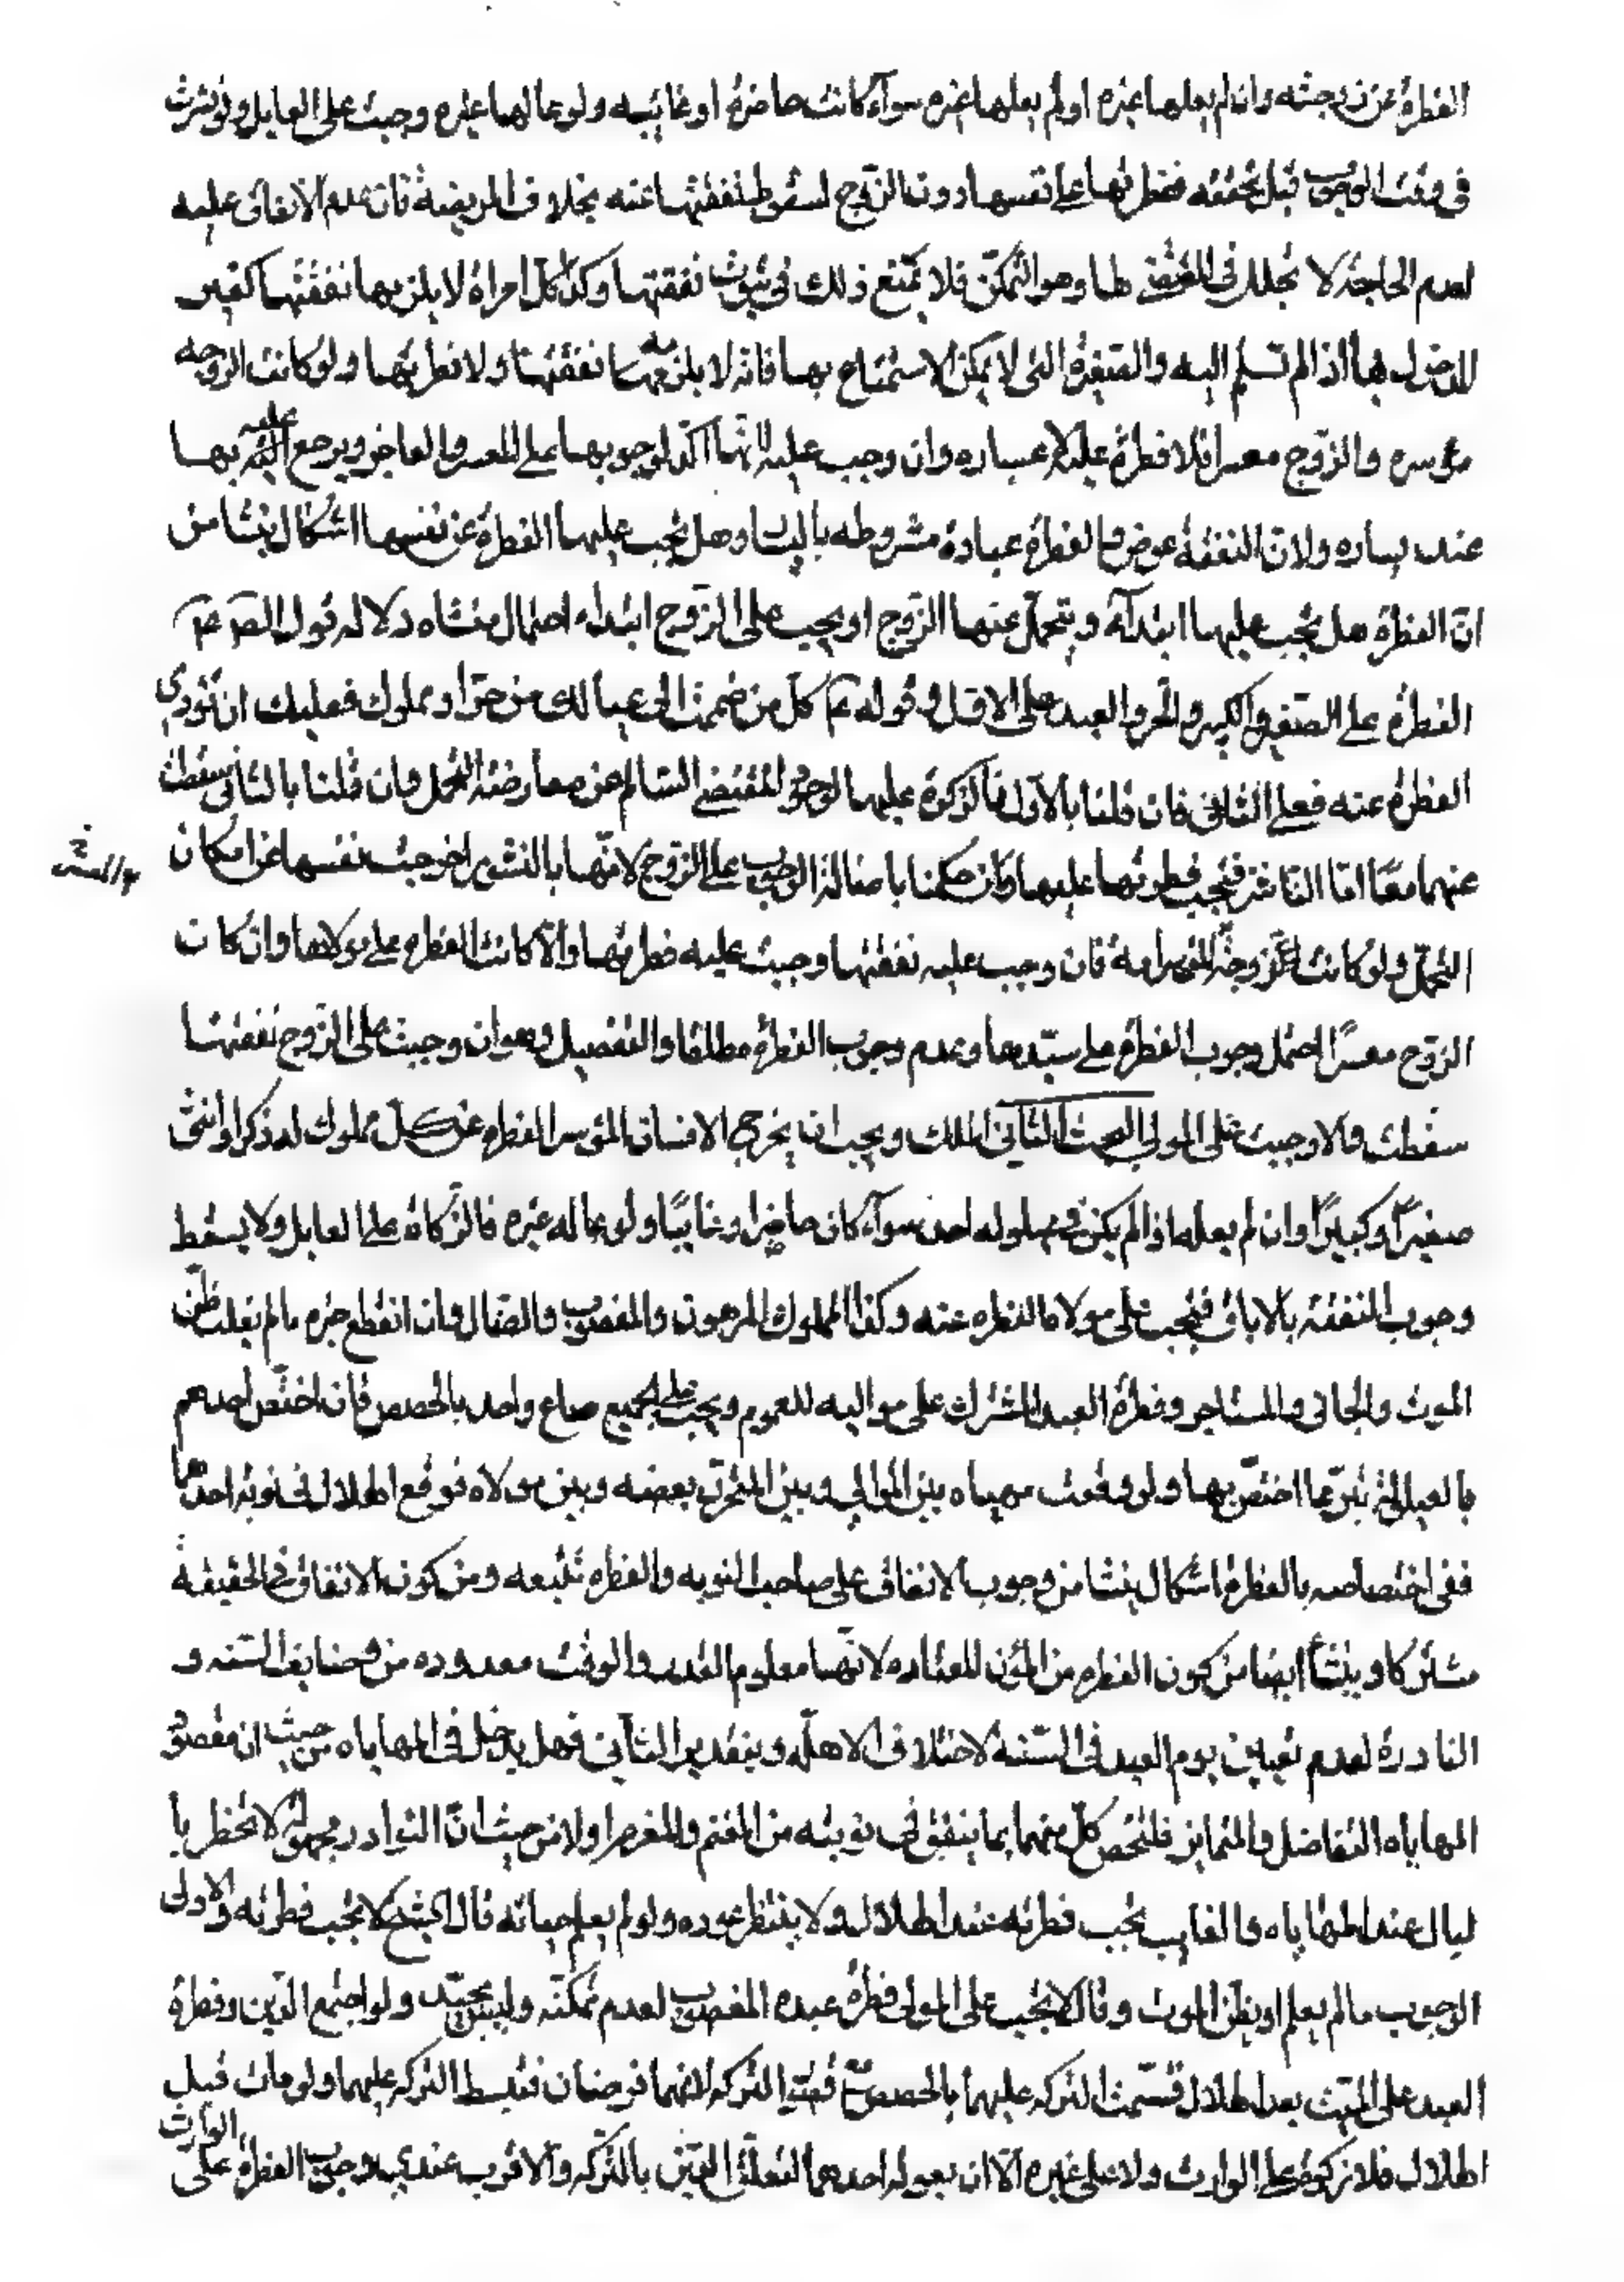 الفطرة عن زوجته وان لم يعلها غيره او لم يعلها غيره سوآء كانت حاضرة او غائبه ولو عالها غيره وجبت على العايل ولو نشزت
فى وقت الوجوب قبل تحققه ففطرتها على نفسها دون الزوج لسقوط نفقتها عنه بخلاف المريضة فان عدم الانفاق عليه
لعدم الحاجة لا لخلل فى المقتضى لها وهو التمكن فلا يمنع ذلك فى ثبوت نفقتها وكذا كل امراة لا يلزمها نفقتها كغير
المدخول بها اذا لم تسلم اليه والصغيرة التى لا يمكن الاستمتاع بها فانه لا يلزمه نفقتها ولا فطرتها ولو كانت الزوجه
موسره والزوج معسرا فلا فطرة عليه لاعساره وان وجب عليه لانها اكد لوجوبها على المعسر والعاجز ويرجع عليه بها
عند يساره ولان النفقة عوض والفطرة عبادة مشروطه باليسار وهل يجب عليها الفطرة عن نفسها اشكال ينشا من
ان الفطرة هل يجب عليها ابتدآء ويتحمل عنها الزوج او يجب على الزوج ابتداء احتمال منشاه دلاله قول الصم عم
الفطرة على الصغير والكبير والحر والعبد على الاول وقوله عم كل من ضممت الى عيالك من حر او مملوك فعليك ان تؤدى
الفطرة عنه فعلى الثانى فان قلنا بالاول فالزكوة عليها لوجود المقتضى السالم عن معارضة التحمل وان قلنا بالثانى سقطت
عنهما معا اما الناشز فيجب فطرتها عليها وان حكمنا باصالة الوجوب على الزوج لانها بالنشوز اخرجت نفسها عن امكان
التحمل ولو كانت زوجة الموسر امة فان وجب عليه نفقتها وجبت عليه فطرتها والا كانت الفطرة على مولاها وان كان
الزوج معسرا احتمل وجوب الفطرة على سيدها وعدم وجوب الفطرة مطلقا والتفصيل وهو ان وجبت على الزوج نفقتها
سقطت والا وجبت على المولى البحث الثانى الملك ويجب ان يخرج الانسان الموسر الفطرة عن كل مملوك له ذكرا او انثى
صغيرا وكبيرا وان لم يعله اذا لم يكن فى احد سوآء كان حاضرا وغايبا ولو عاله غيره فالزكاة على العايل ولا يسقط
وجوب النفقة بالاباق فيجب على مولاه الفطره عنه وكذا المملوك المرهون والمغصوب والضال وان انقطع خبره ما لم يغلب ظن
الموت والجانى والمستاجر وفطرة العبد المشترك على مواليه للعموم ويجب على الجميع صاع واحد بالحصص فان اختص احدهم
بالعيلولة تبرعا اختص بها ولو وقعت مهاياه بين الموالى وبين المتحرر بعضه وبين مولاه فوقع الهلال فى نوبة احدهما
ففى اختصاصه بالفطرة اشكال ينشا من وجوب الانفاق على صاحب النوبه والفطره تتبعه ومن كون الانفاق فى الحقيقة
مشتركا وينشأ ايضا من كون الفطره من المؤن المعتاده لانها معلوم القدر والوقت معدوده من وضايف السنه و
النادرة لعدم تعيين يوم العيد فى السنه لاختلاف الاهله وبتقدير الثانى فهل يدخل فى المهاياه من حيث ان مقصود
المهاياه التفاضل والتمايز فليختص كل منهما بما يتفق فى نوبته من المغنم والمغرم اولا من حيث ان النوادر مجهولة لا تخطر با
لبال عند المهاياه والغايب يجب فطرته عند الهلال ولا ينتظر عوده ولو لم يعلم حياته قال الشيخ لا يجب فطرته والاولى
الوجوب مالم يعلم او يظن الموت وقال لا يجب على المولى فطرة عبده المغصوب لعدم تمكنه وليس بجيد ولو اجتمع الدين وفطرة
العبد على الميت بعد الهلال قسمت التركه عليهما بالحصص مع قصور التركه لانهما فرضان فتبسط التركه عليهما ولو مات قبل
الهلال فلا زكوة على الوارث ولا على غيره الا ان يعوله احدهما لتعلق الدين بالتركه والاقرب عندى وجوب الفطرة على
الوارث